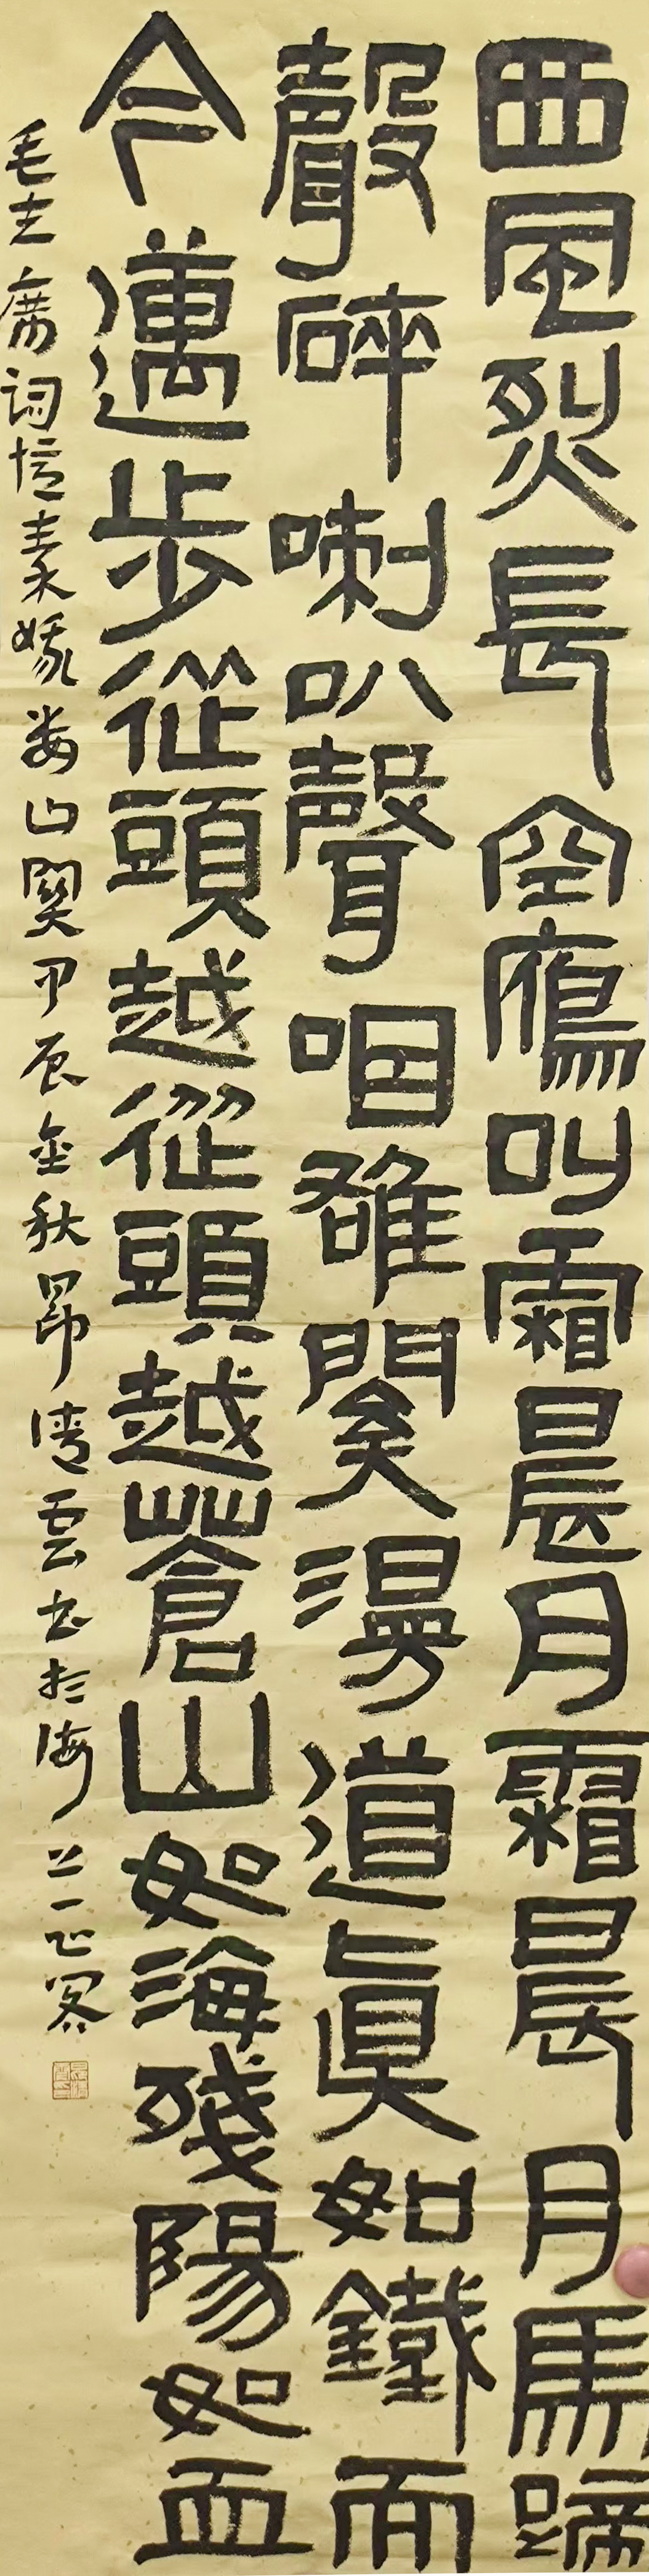 西風烈長空鴈叫霜晨月霜晨月馬蹄
聲碎喇叭聲咽雄関漫道真如鐵而
今邁步從頭越從頭越蒼山如海殘陽如血
毛主席词憶秦娥娄山関甲辰金秋昂清雲书於海上一正閣